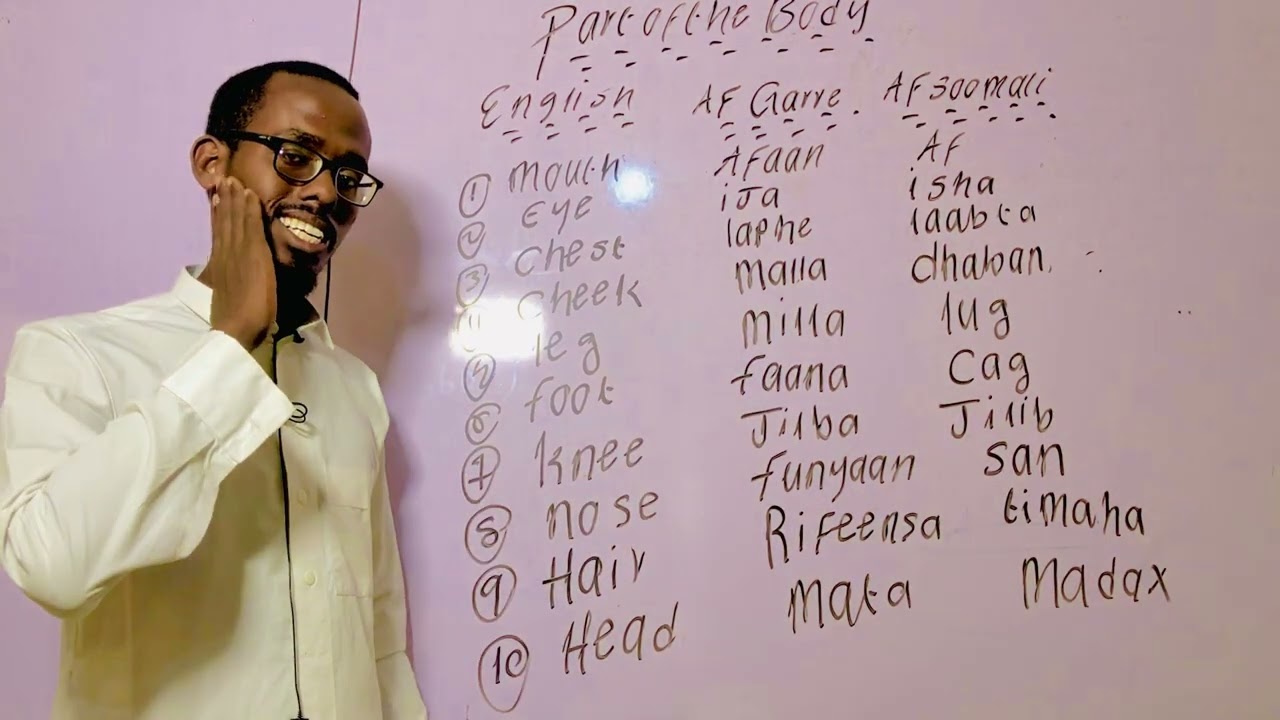 Part of the Body
English AF Garre. AF Soomali.
1 mouth AFaan AF
2 Eye iJa isha
3 chest laphe laabta
4 cheek malla dhaban.
5 leg milla lug
6 foot faana Cag
7 knee Jilba Jilib
8 nose funyaan san
9 Hair RiFeensa timaha
10 Head Mata Madax